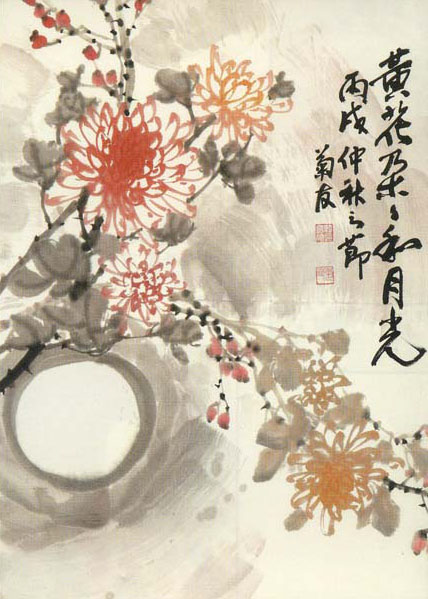 黃花朵〻和月光
丙戌仲秋之節
菊友